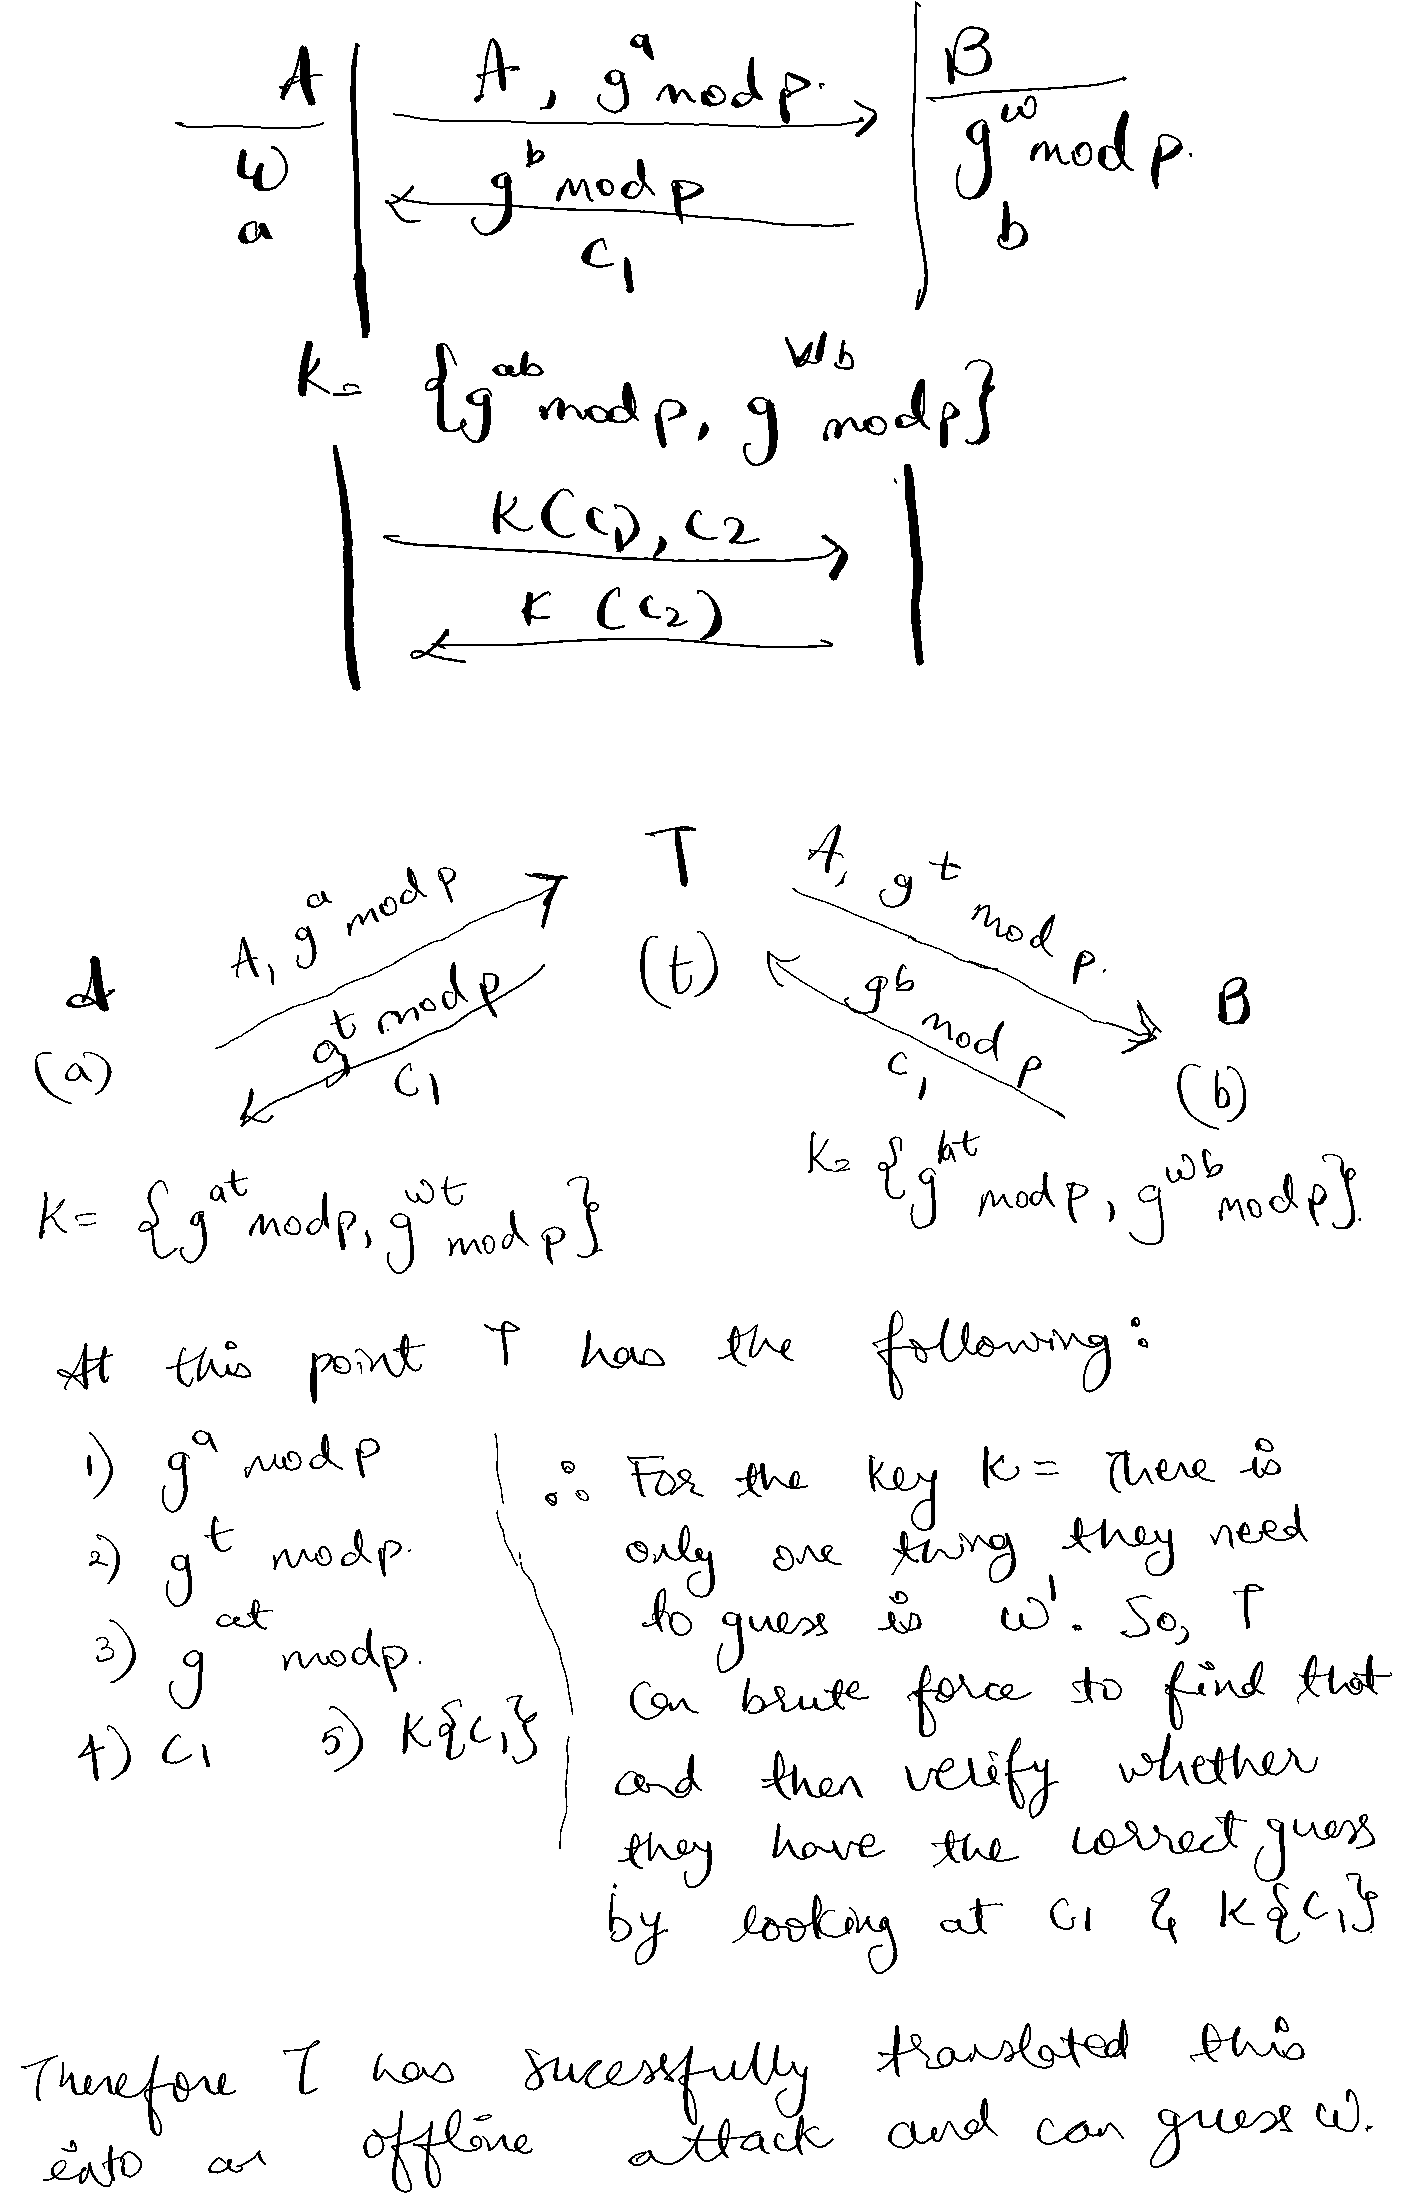 A | A, g^a mod p. | B
w | g^b mod p | g^w mod p.
a | c1 | b
K = {g^ab mod p, g^wb mod p}
K(c1), c2
K (c2)
T
A, g^a mod p
A, g^t mod p.
A
(a)
g^t mod p
c1
(t)
g^b mod p
c1
B
(b)
K = {g^at mod p, g^wt mod p}
K = {g^bt mod p, g^wb mod p}.
At this point T has the following:
1) g^a mod p
2) g^t mod p.
3) g^at mod p.
4) c1 5) K{c1}
∴ For the key K = There is
only one thing they need
to guess is w'. So, T
can brute force to find that
and then verify whether
they have the correct guess
by looking at c1 & K{c1}
Therefore T has sucessfully translated this
into an offline attack and can guess w.